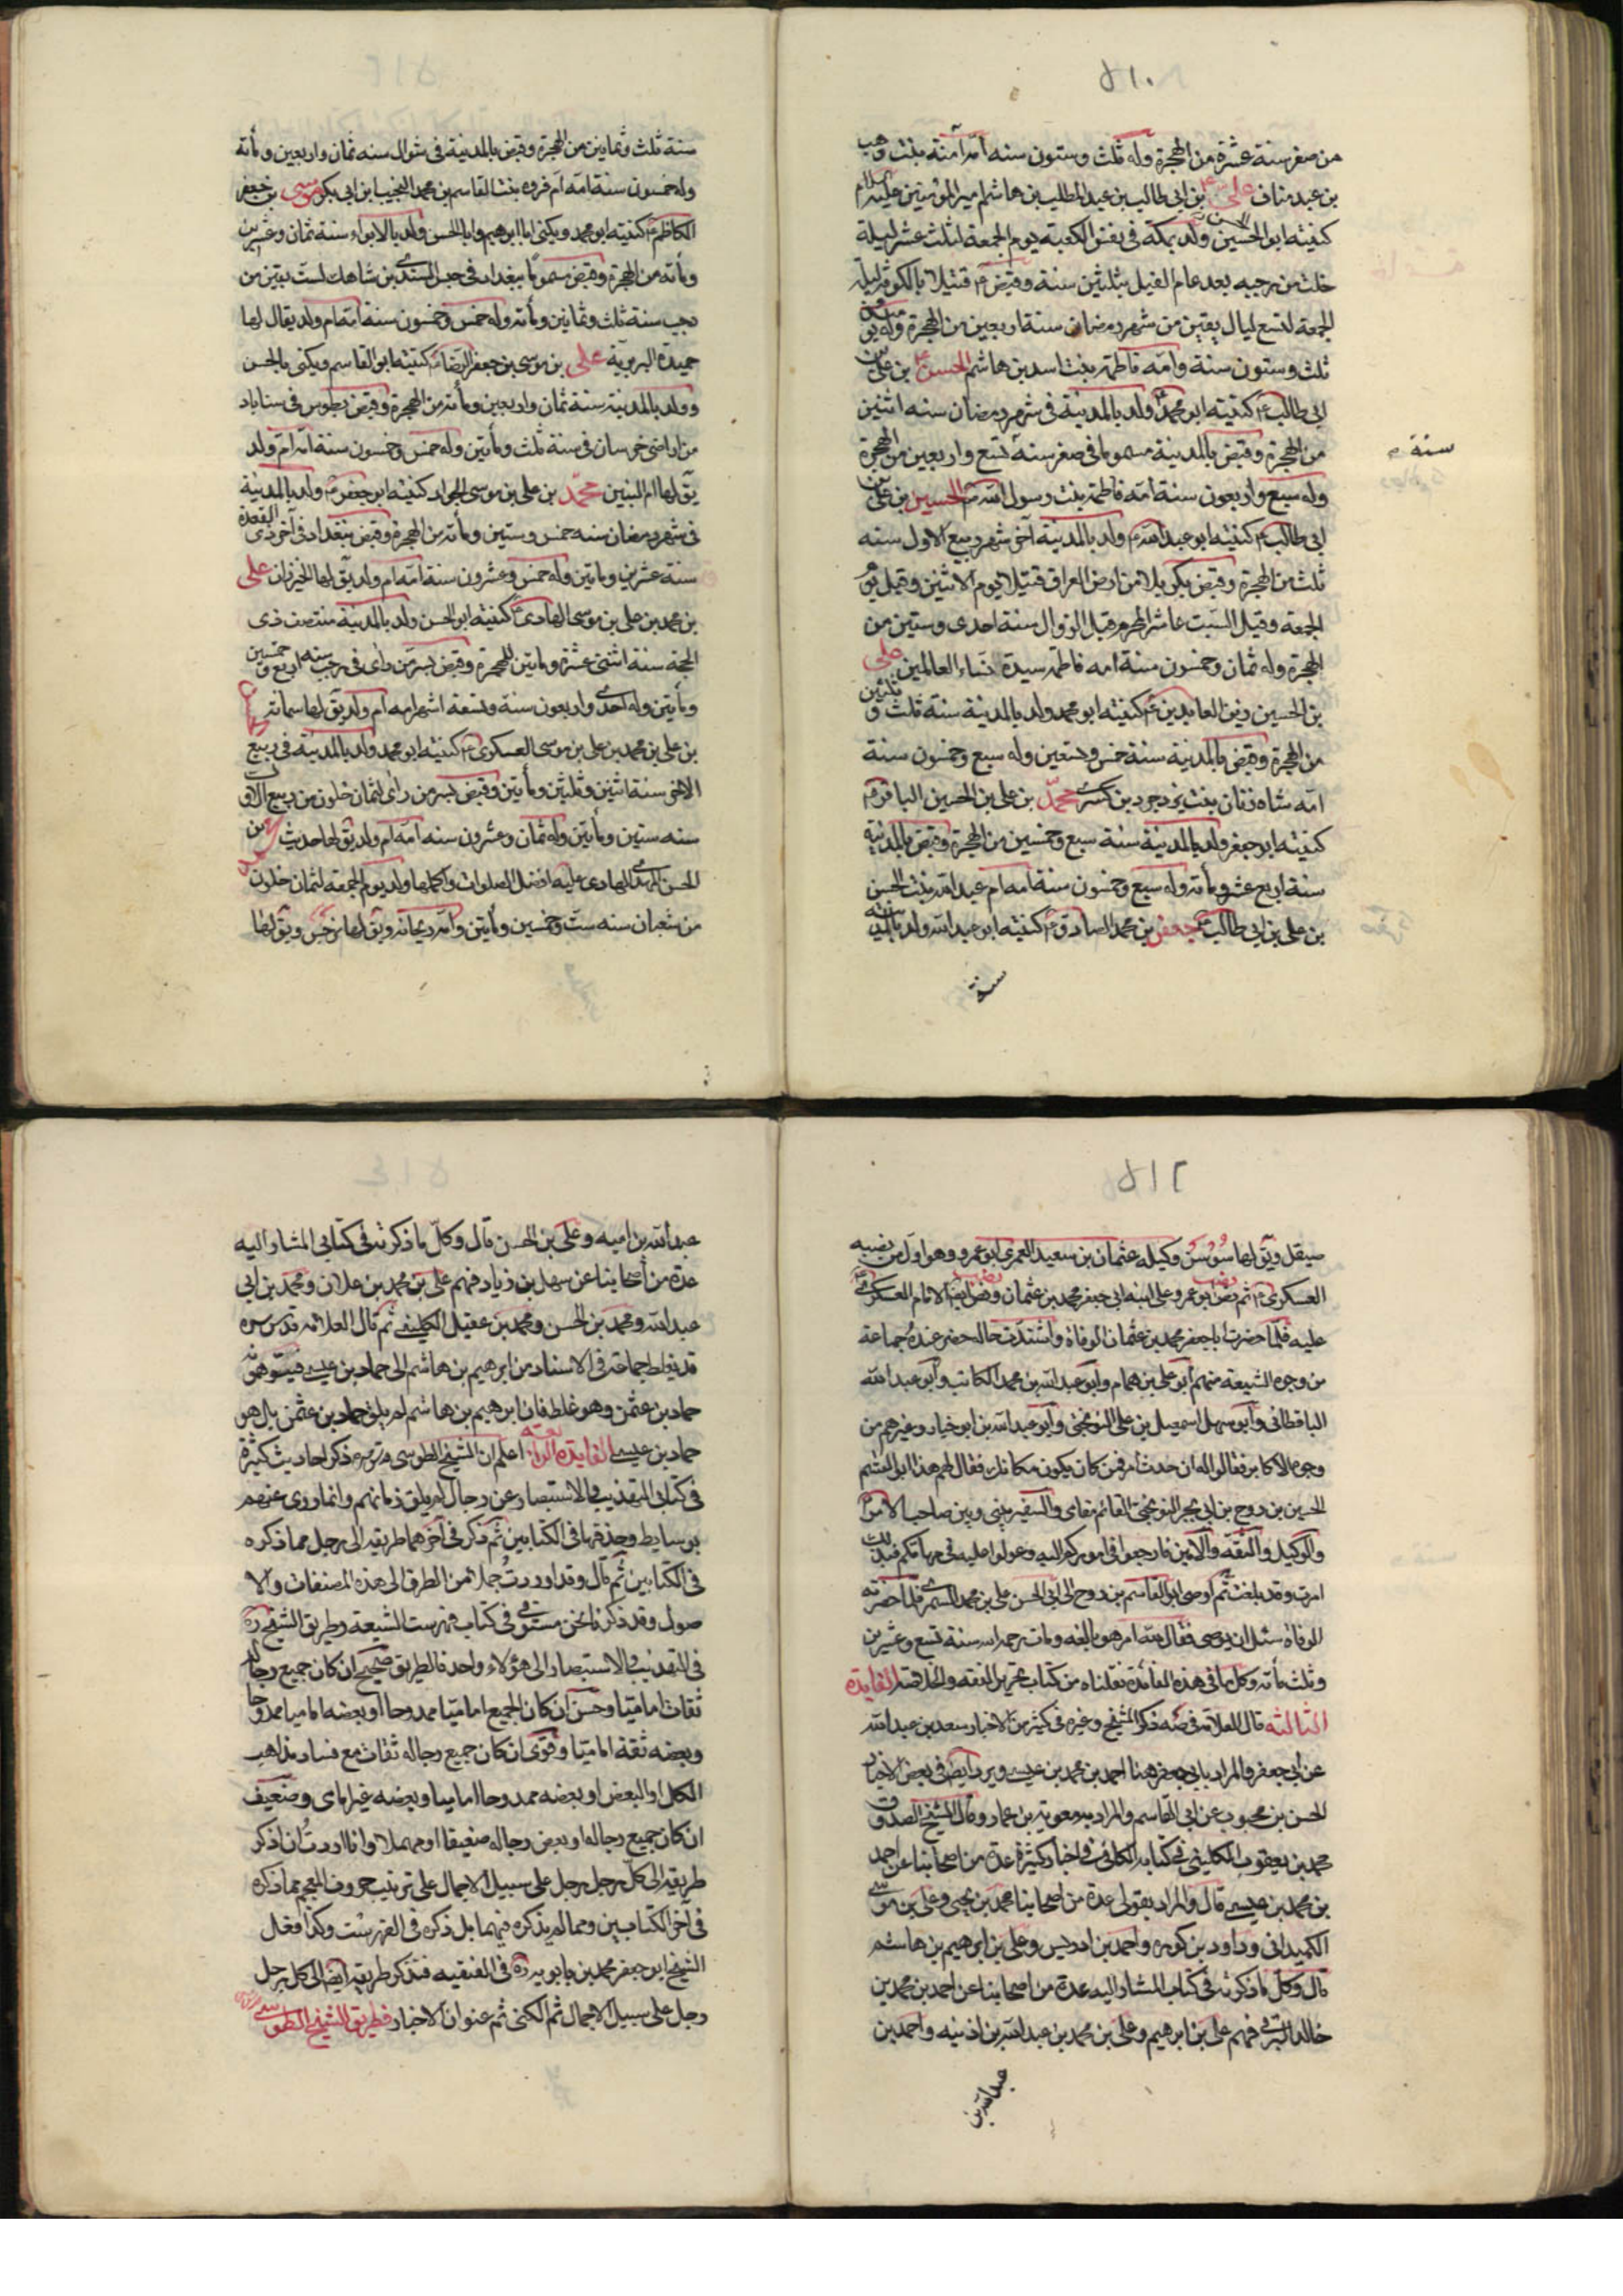 ٥١٠
من صفر سنة عشرة من الهجرة وله ثلث وستون سنه امه آمنة بنت وهب
بن عبد مناف علي بن ابي طالب بن عبد المطلب بن هاشم امير المؤمنين عليه السلام
كنيته ابو الحسن ولد بمكة في نفس الكعبة يوم الجمعة لثلث عشر ليلة
خلت من رجب بعد عام الفيل بثلثين سنة وقبض ع قتيلا بالكوفة ليلة
الجمعة لتسع ليال بقين من شهر رمضان سنة اربعين من الهجرة وله يومئذ
ثلث وستون سنة وامه فاطمة بنت اسد بن هاشم الحسن بن علي بن
ابي طالب ع كنيته ابو محمد ولد بالمدينة في شهر رمضان سنه اثنين
من الهجرة وقبض بالمدينة مسموما في صفر سنة تسع واربعين من الهجرة
سنة
وله سبع واربعون سنة امه فاطمة بنت رسول الله ص الحسين بن علي بن
ابي طالب ع كنيته ابو عبد الله ولد بالمدينة آخر شهر ربيع الاول سنه
ثلث من الهجرة وقبض بكربلا من ارض العراق قتيلا يوم الاثنين وقيل يوم
الجمعة وقيل السبت عاشر المحرم قبل الزوال سنة احدى وستين من
الهجرة وله ثمان وخمسون سنة امه فاطمة سيدة نساء العالمين علي
بن الحسين زين العابدين ع كنيته ابو محمد ولد بالمدينة سنة ثلث و ثلثين
من الهجرة وقبض بالمدينة سنة خمس وتسعين وله سبع وخمسون سنة
امه شاه زنان بنت يزدجرد بن كسرى محمد بن علي بن الحسين الباقر ع
كنيته ابو جعفر ولد بالمدينة سنة سبع وخمسين من الهجرة وقبض بالمدينة
سنة اربع عشر ومأة وله سبع وخمسون سنة امه ام عبد الله بنت الحسن
بن علي بن ابي طالب جعفر بن محمد الصادق ع كنيته ابو عبد الله ولد بالمدينة
سنة
سنة ثلث وثمانين من الهجرة وقبض بالمدينة في شوال سنه ثمان واربعين ومأته
وله خمسون سنة امه ام فروه بنت القاسم بن محمد النجيب ابن ابي بكر موسى بن جعفر
الكاظم ع كنيته ابو محمد ويكنى ابا ابراهيم وابا الحسن ولد بالابواء سنة ثمان وعشرين
ومأته من الهجرة وقبض مسموما ببغداد في حبس السندي بن شاهك لست بقين من
رجب سنة ثلث وثمانين ومأته وله خمس وخمسون سنة امه ام ولد يقال لها
حميدة البربرية علي بن موسى بن جعفر الرضا كنيته ابو القاسم ويكنى بالحسن
وولد بالمدينة سنة ثمان واربعين ومأته من الهجرة وقبض بطوس في سناباد
من اراضي خرسان في سنة ثلث ومأتين وله خمس وخمسون سنة امه ام ولد
يق لها ام البنين محمد بن علي بن موسى الجواد كنيته ابو جعفر ع ولد بالمدينة
في شهر رمضان سنه خمس وستين ومأته من الهجرة وقبض ببغداد في آخر ذي القعدة
سنة عشرين ومأتين وله خمس وعشرون سنة امه ام ولد يق لها الخيزران علي
بن محمد بن علي بن موسى الهادي ع كنيته ابو الحسن ولد بالمدينة منتصف ذي
الحجة سنة اثنتي عشرة ومأتين للهجرة وقبض بسر من راى في رجب سنه اربع و خمسين
ومأتين وله احدى واربعون سنة وتسعة اشهر امه ام ولد يق لها سمانه
بن علي بن محمد بن علي بن موسى العسكري ع كنيته ابو محمد ولد بالمدينة في ربيع
الاخر سنة اثنين وثلثين ومأتين وقبض بسر من راى لثمان خلون من ربيع الاول
سنه ستين ومأتين وله ثمان وعشرون سنه امه ام ولد يق لها حديث
الحسن المهدي الهادي عليه افضل الصلوات واكملها ولد يوم الجمعه لثمان خلون
من شعبان سنه ست وخمسين ومأتين وامه ريحانه ويق لها نرجس ويق لها
٥١٢
صيقل ويق لها سوسن وكيله عثمان بن سعيد العمري ابو عمرو وهو اول من نصبه
العسكري ع ثم نص ابو عمرو على ابنه ابي جعفر محمد بن عثمان ونص ايضا الامام العسكري
عليه فلما حضرت ابا جعفر محمد بن عثمان الوفاة واشتدت حاله حضر عنده جماعة
من وجوه الشيعة منهم ابو علي بن همام وابو عبد الله بن محمد الكاتب وابو عبد الله
الباقطاني وابو سهل اسمعيل بن علي النوبختي وابو عبد الله بن ابو خيار وغيرهم من
وجوه الاكابر فقالوا له ان حدث امر فمن كان يكون مكانك فقال لهم هذا ابو القسم
الحسين بن روح بن ابي بحر النوبختي القائم مقامي والسفير بيني وبين صاحب الامر
والوكيل والثقة والامين فارجعوا في اموركم اليه وعولوا عليه في مهماتكم فبذلك
امرت وقد بلغت ثم اوصى ابو القاسم بن روح الى ابي الحسن علي بن محمد السمري فلما حضرته
الوفاة سئل ان يوصى فقال لله امر هو بالغه ومات رحمه الله سنة تسع وعشرين
وثلث مأته وكل ما في هذه الفائدة نقلناه من كتاب تحرير الفقه والحديث الفايدة
الثالثه قال العلامة في صه ذكر الشيخ وغيره في كثير من الاخبار سعد بن عبد الله
عن ابي جعفر والمراد بابي جعفر هنا احمد بن محمد بن عيسى ويرد ايضا في بعض الاخبار
الحسن بن محبوب عن ابي القاسم والمراد به معوية بن عمار وقال الشيخ الصدوق
محمد بن يعقوب الكليني في كتابه الكافي في اخبار كثيرة عدة من اصحابنا عن احمد
بن محمد بن عيسى قال والمراد بقولي عدة من اصحابنا محمد بن يحيى وعلي بن موسى
الكميداني وداود بن كوره واحمد بن ادريس وعلي بن ابراهيم بن هاشم
قال وكل ما ذكرته في كتاب المشار اليه عدة من اصحابنا عن احمد بن محمد بن
خالد البرقي فهم علي بن ابراهيم وعلي بن محمد بن عبد الله بن اذنيه واحمد بن
عبد الله بن
عبد الله بن اميه وعلي بن الحسن قال وكل ما ذكرته في كتابي المشار اليه
عدة من اصحابنا عن سهل بن زياد فهم علي بن محمد بن علان ومحمد بن ابي
عبد الله ومحمد بن الحسن ومحمد بن عقيل الكليني ثم قال العلامه قدس سره
قد يغلط جماعة في الاسناد من ابراهيم بن هاشم الى حماد بن عيسى فيتوهمونه
حماد بن عثمن وهو غلط فان ابراهيم بن هاشم لم يلق حماد بن عثمن بل هو
حماد بن عيسى الفايدة الرابعه اعلم ان الشيخ الطوسي ذكر احاديث كثيرة
في كتابي التهذيب والاستبصار عن رجال لم يلق زمانهم وانما روى عنهم
بوسايط وحذفها في الكتابين ثم ذكر في آخرهما طريقه الى رجل مما ذكره
في الكتابين ثم قال وقد اوردت جملا من الطرق الى هذه المصنفات والا
صول وقد ذكرنا نحن مستوفى في كتاب فهرست الشيعة وطريق الشيخ ره
في التهذيب والاستبصار الى هؤلاء واحد فالطريق صحيح ان كان جميع رجاله
ثقات اماميا وحسن ان كان الجميع اماميا ممدوحا او بعضه اماميا ممدوحا
وبعضه ثقة اماميا وقوى ان كان جميع رجاله ثقات مع فساد مذاهب
الكل او البعض او بعضه ممدوحا اماميا وبعضه غير امامي وضعيف
ان كان جميع رجاله او بعض رجاله ضعيفا او مهملا وانا اوردت ان اذكر
طريقه الى كل رجل رجل على سبيل الاجمال على ترتيب حروف المعجم مما ذكره
في آخر الكتابين ومما لم يذكره فيهما بل ذكره في الفهرست وكذا فعل
الشيخ ابو جعفر محمد بن بابويه ره في الفقيه فنذكر طريقه ايضا الى كل رجل
رجل على سبيل الاجمال ثم الكنى ثم عنوان الاخبار فطريق الشيخ الطوسي